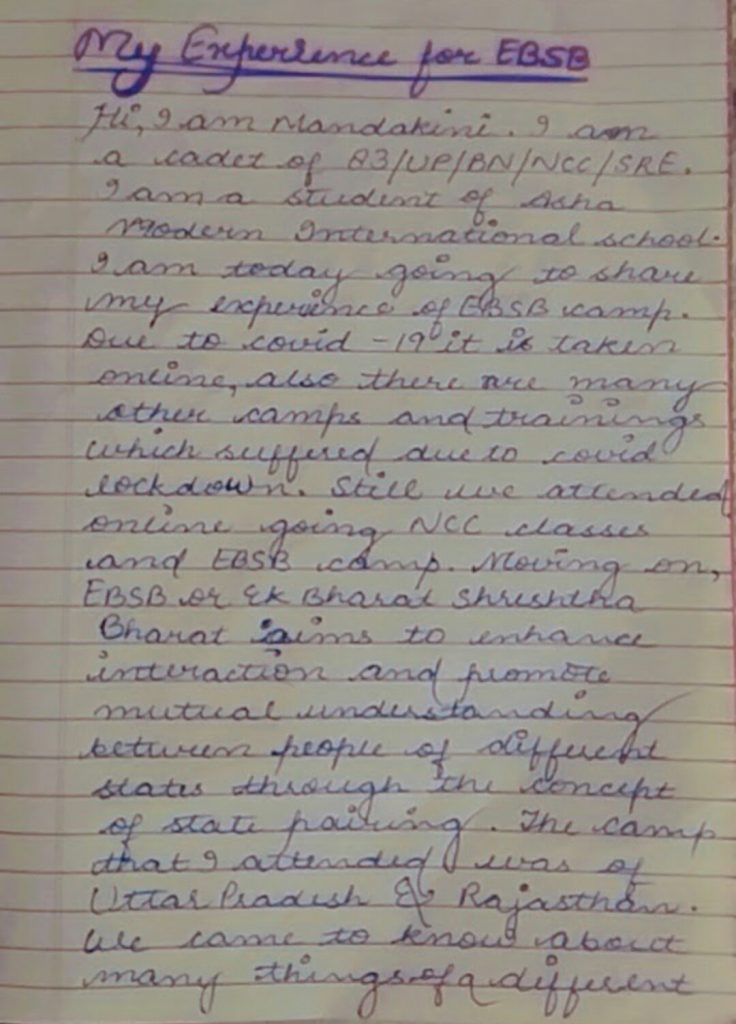 My Experience for EBSB
Hi, I am Mandakini. I am
a cadet of 83/UP/BN/NCC/SRE.
I am a student of Asha
Modern International school.
I am today going to share
my experience of EBSB camp.
Due to covid -19 it is taken
online, also there are many
other camps and trainings
which suffered due to covid
lockdown. Still we attended
online going NCC classes
and EBSB camp. Moving on,
EBSB or Ek Bharat Shreshtha
Bharat aims to enhance
interaction and promote
mutual understanding
between people of different
states through the concept
of state pairing. The camp
that I attended was of
Uttar Pradesh & Rajasthan.
We came to know about
many things of a different